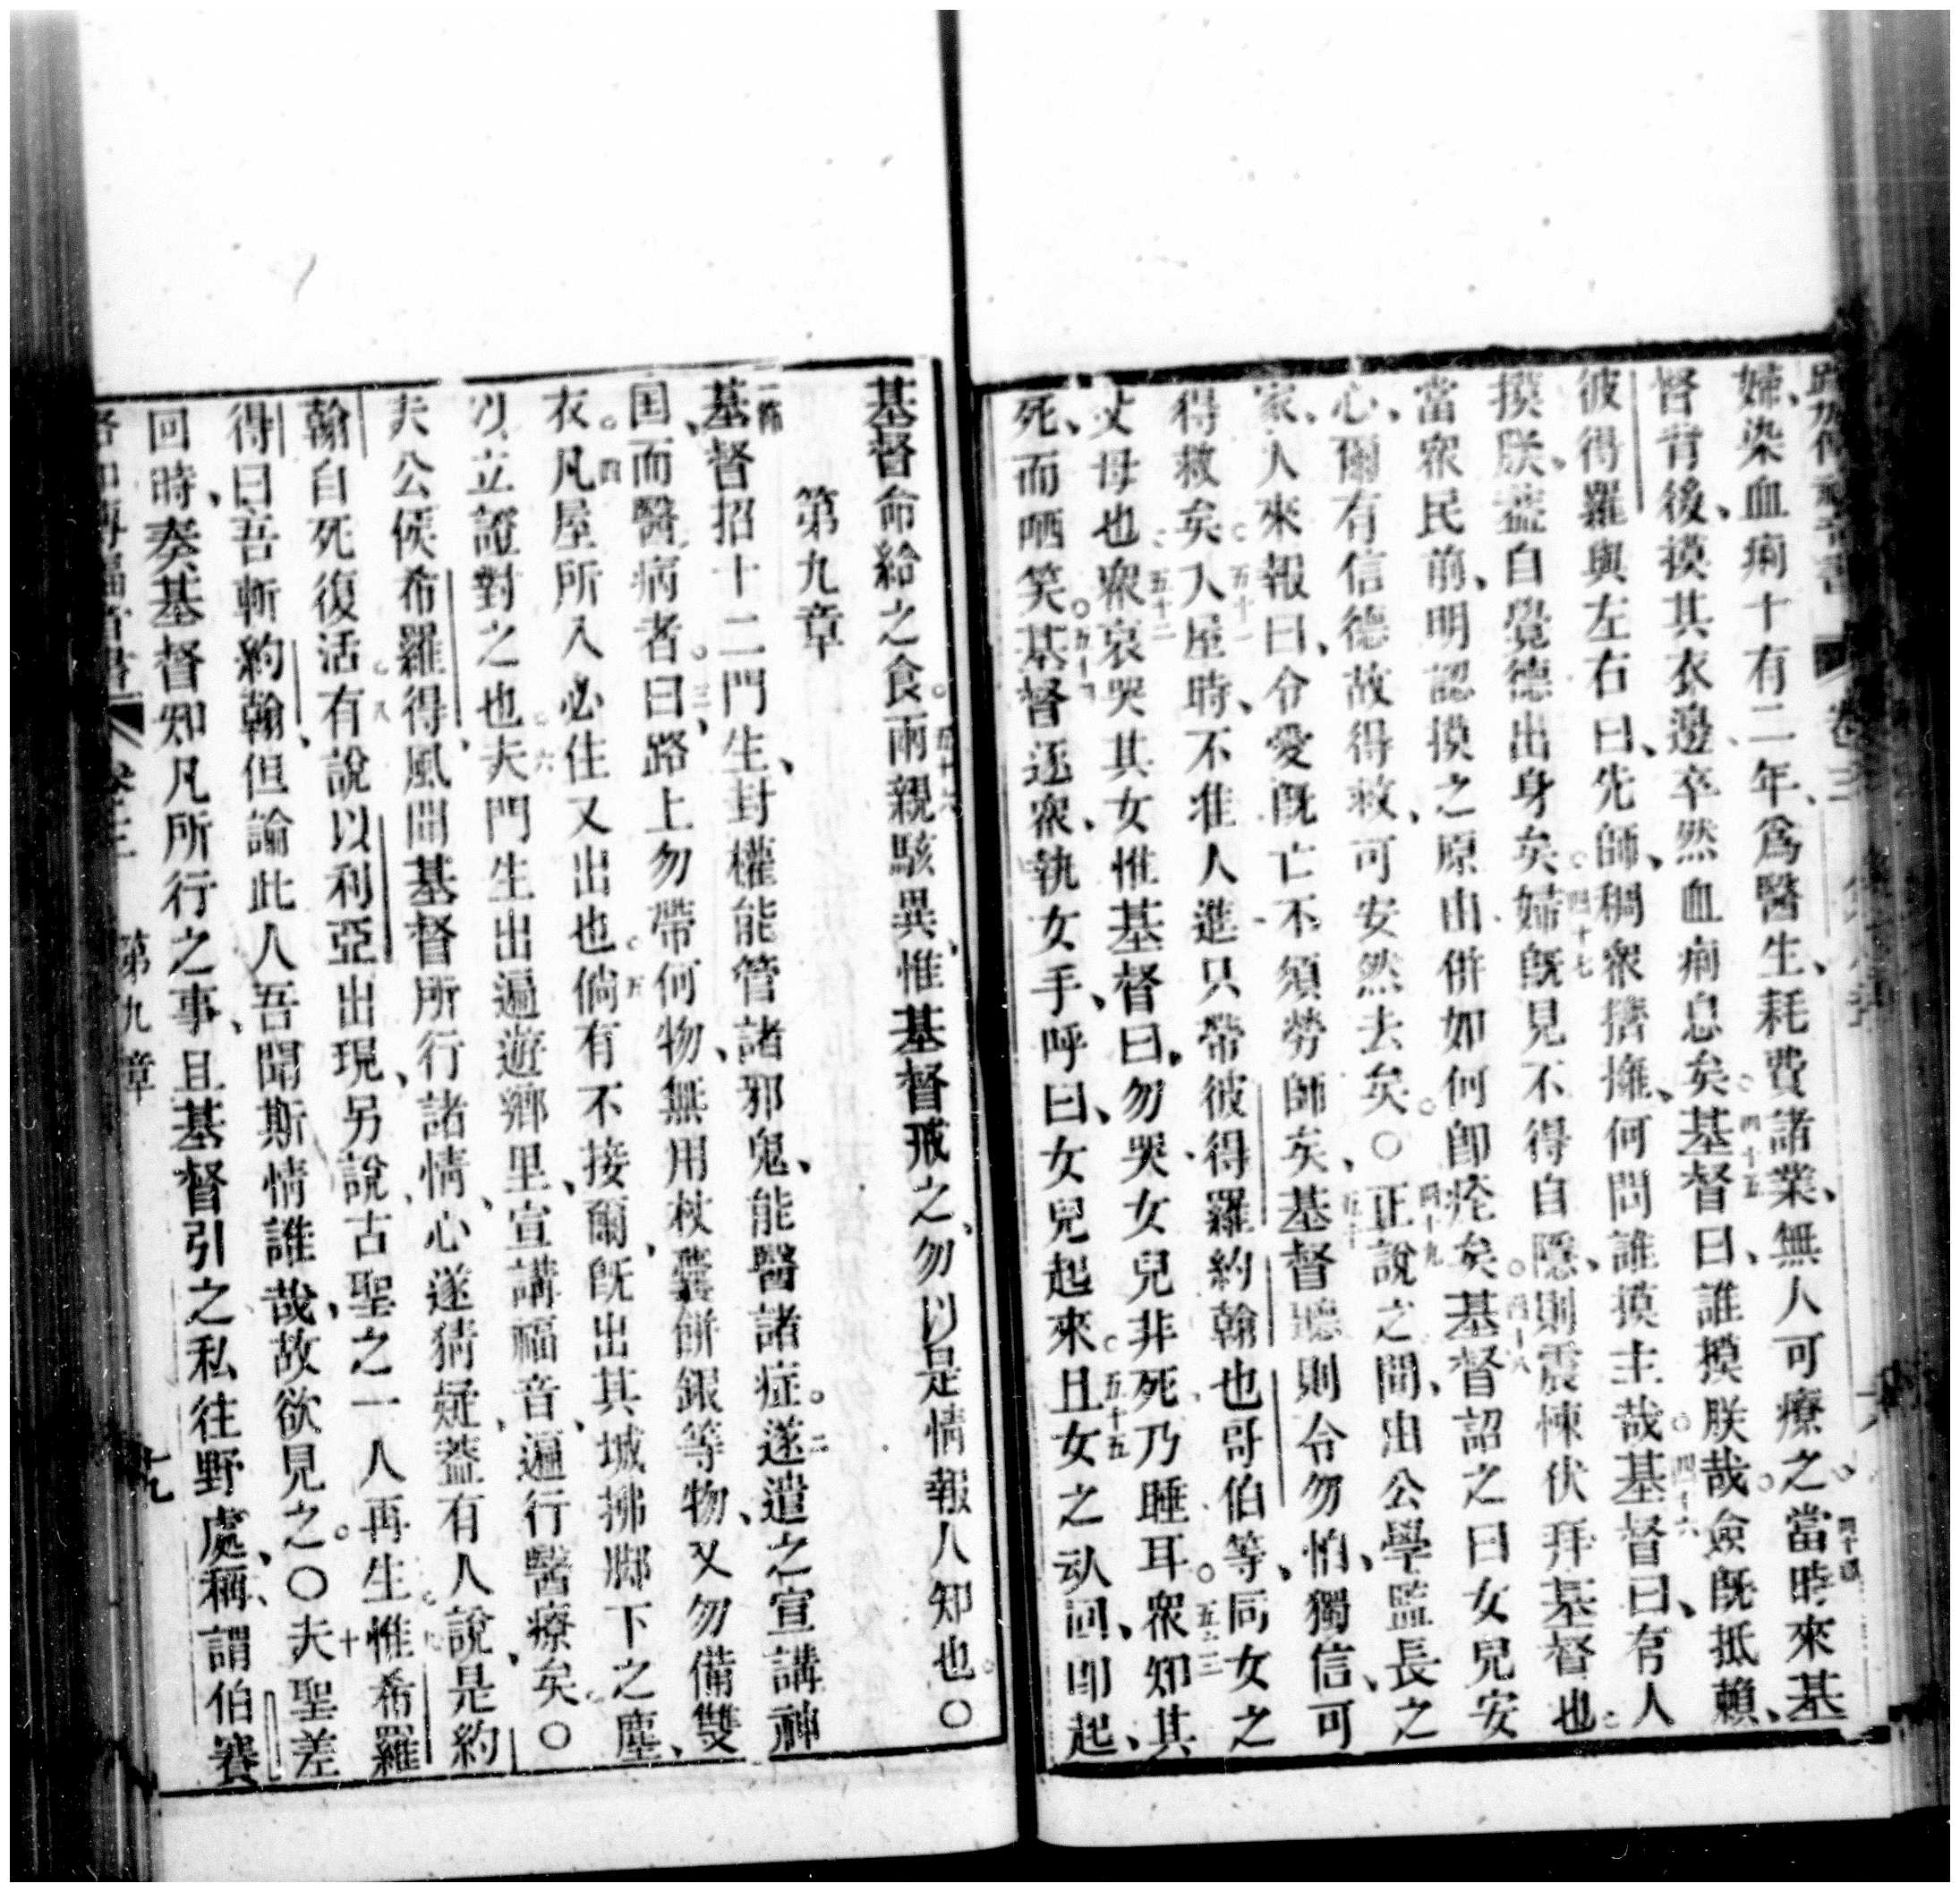 婦、染血痢十有二年、為醫生、耗費諸業、無人可療之、當時來基
督背後、摸其衣邊、卒然血痢息矣。四十五基督曰、誰摸朕哉。僉旣抵賴、
彼得羅與左右曰、先師、稠衆擠擁、何問誰摸主哉。四十六基督曰、有人
摸朕。蓋自覺德出身矣。四十七婦旣見不得自隱、則震悚伏拜基督也。
當衆民前、明認摸之原由併如何卽痊矣。四十八基督詔之曰女兒安
心、爾有信德故得救、可安然去矣。〇四十九正說之間、出公學監長之
家、人來報曰、令愛旣亡不須勞師矣、五十基督聽則令勿怕、獨信、可
得救矣。五十一入屋時、不准人進只帶彼得羅約翰也哥伯等、同女之
父母也。五十二衆哀哭其女惟基督曰、勿哭、女兒非死乃睡耳。五十三衆知其
死、而哂笑。五十四基督逐衆、執女手、呼曰、女兒起來。五十五且女之动回、即起、
基督命給之食。五十六兩親駭異、惟基督戒之、勿以是情報人知也。〇
第九章
一節基督招十二門生、封權能管諸邪鬼、能醫諸症。二遂遣之宣講神
国、而醫病者。三曰、路上勿帶何物、無用杖囊餅銀等物、又勿備雙
衣。四凡屋所入必住又出也。五倘有不接爾、旣出其城拂脚下之塵、
以立證對之也。六夫門生出遍遊鄉里、宣講福音、遍行醫療矣。〇
夫公侯希羅得、風聞基督所行諸情、心遂猜疑、蓋有人說、是約
翰自死復活。八有說以利亞出現、另說古聖之一人再生。惟希羅
得曰、吾斬約翰、但論此人吾聞斯情誰哉、故欲見之。〇十夫聖差
回時、奏基督知凡所行之事、且基督引之私往野處、稱、謂伯賽
第九章